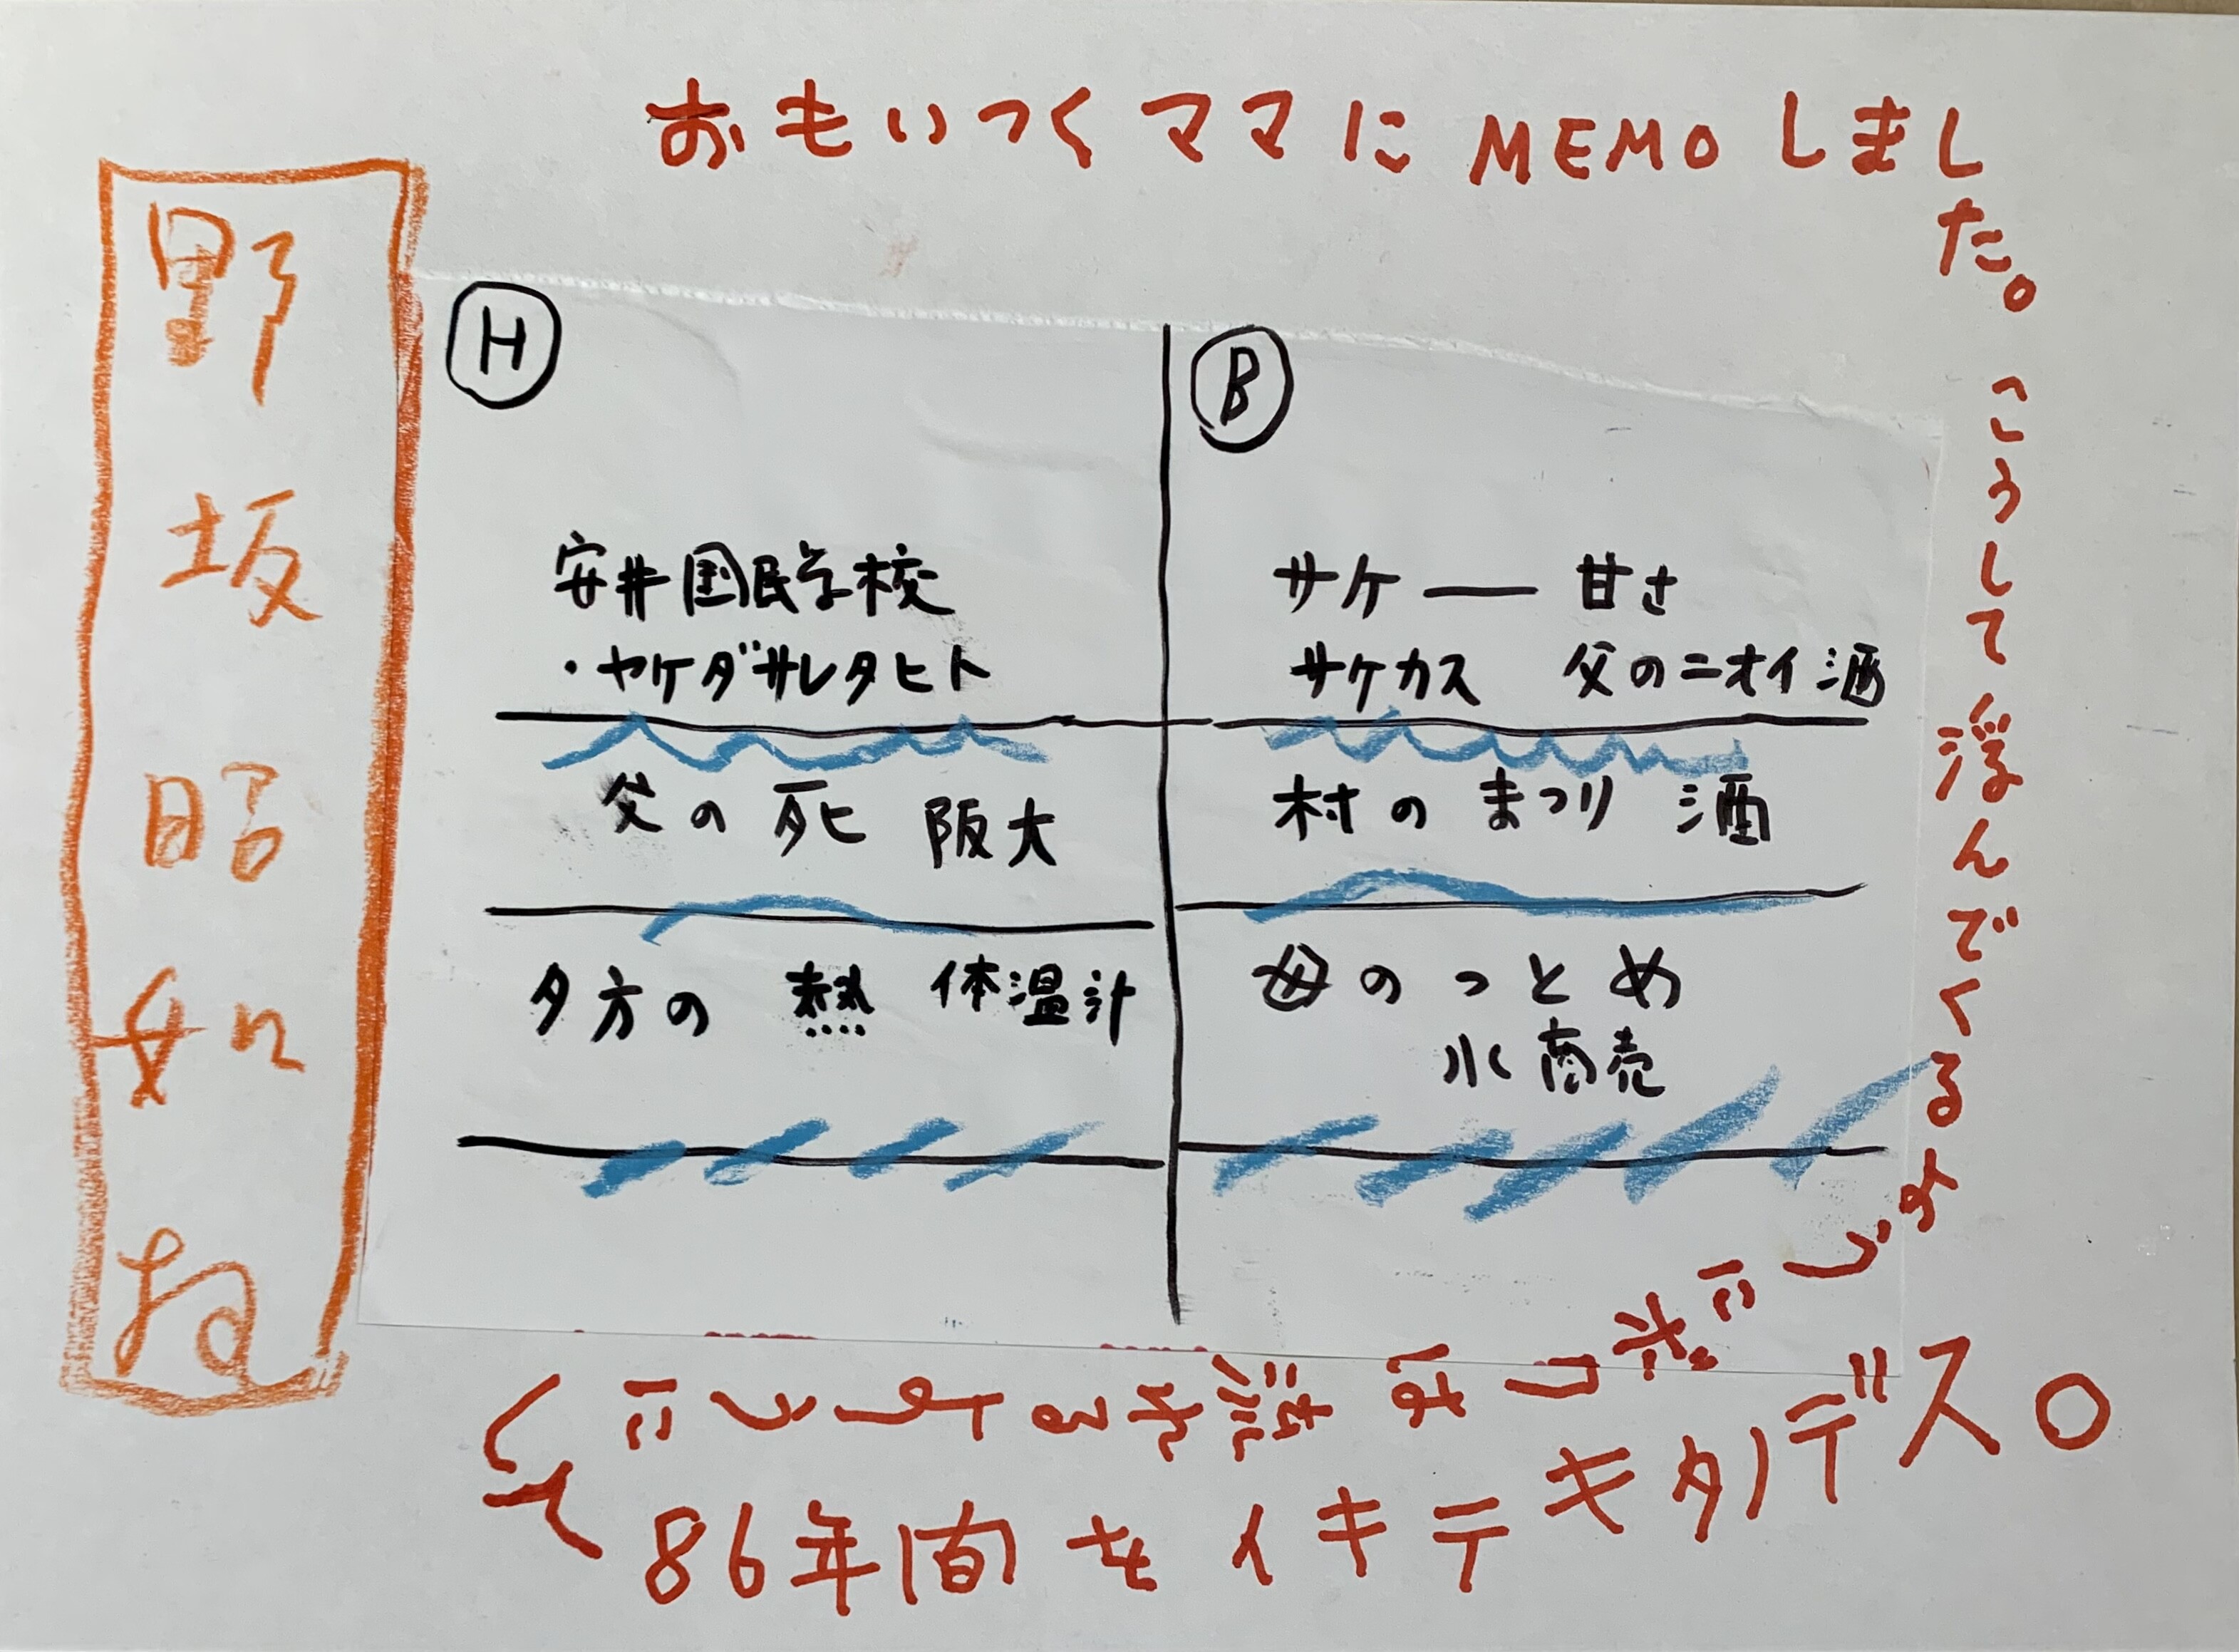 おもいつくママにMEMOしました。こうして浮んでくるように
野坂昭如ね
H
安井国民学校
・ヤケダサレタヒト
父の死 阪大
夕方の 熱 体温計
B
サケ ― 甘さ
サケカス 父のニオイ酒
村の まつり 酒
母のつとめ
水商売
86年間をイキテキタノデス。